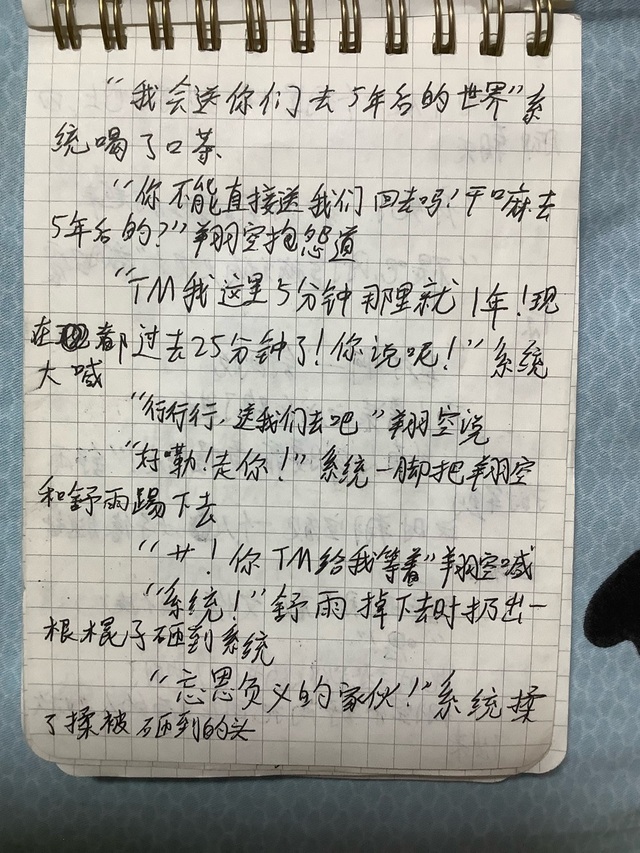 “我会送你们去5年后的世界”系
统喝了口茶
“你不能直接送我们回去吗！干嘛去
5年后的？”翔空抱怨道
“TM我这里5分钟那里就1年！现
在都过去25分钟了！你说呢！”系统
大喊
“行行行，送我们去吧”翔空说
“好嘞！走你！”系统一脚把翔空
和舒雨踢下去
“艹！你TM给我等着”翔空喊
“系统！”舒雨掉下去时扔出一
根棍子砸到系统
“忘恩负义的家伙！”系统揉
了揉被砸到的头